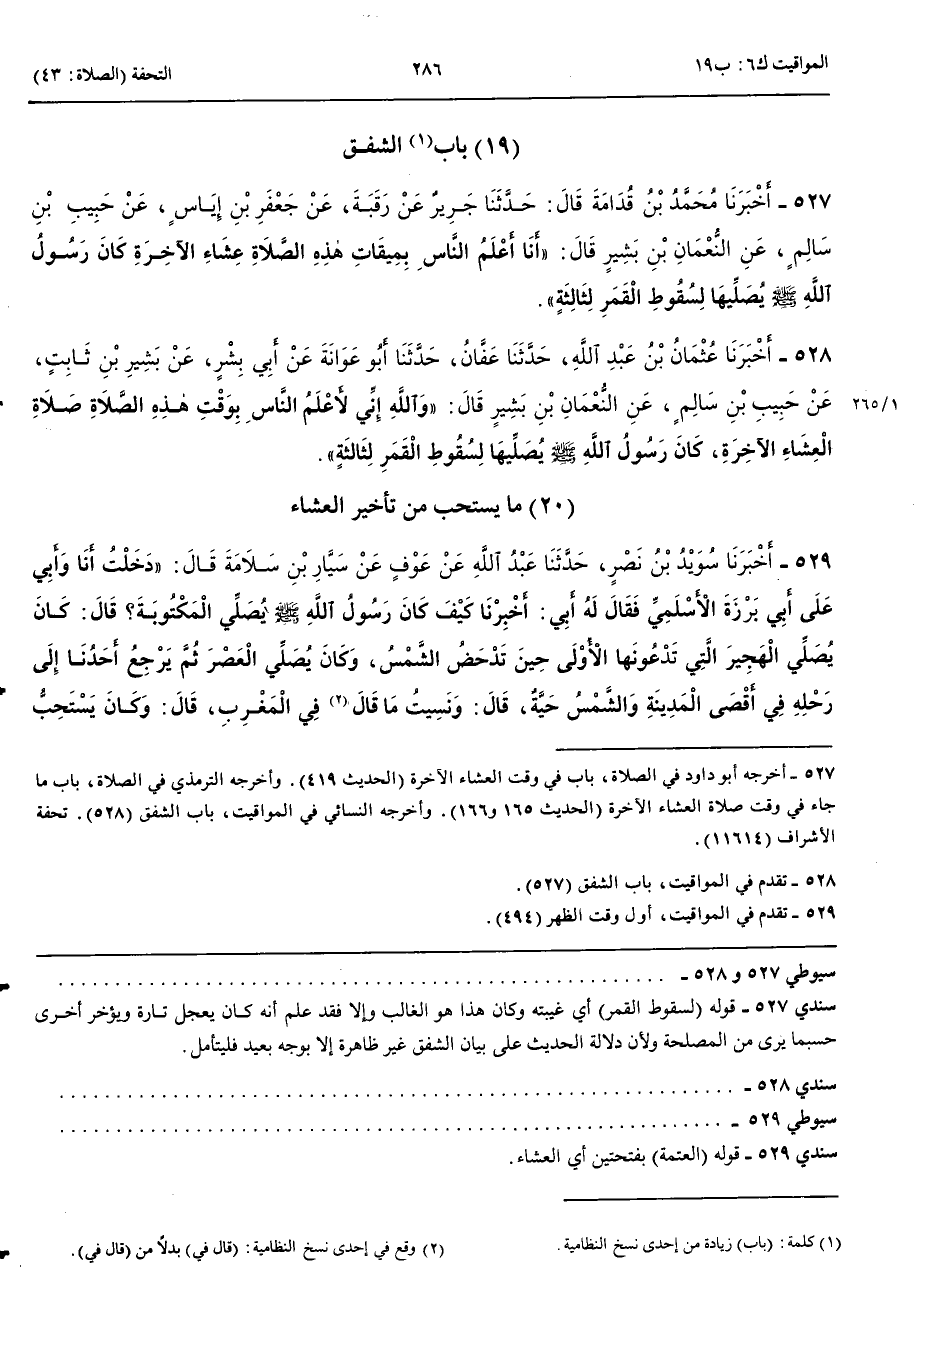 المواقيت ك٦: ب١٩
٢٨٦
التحفة (الصلاة: ٤٣)
(١٩) باب(١) الشفـق
٥٢٧ ـ أَخْبَرَنَا مُحَمَّدُ بْنُ قُدَامَةَ قَالَ: حَـدَّثَنَا جَـرِيرٌ عَنْ رَقَبَـةَ، عَنْ جَعْفَرِ بْنِ إِيَـاسٍ، عَنْ حَبِيبِ بْنِ
سَالِمٍ، عَنِ النُّعْمَانِ بْنِ بَشِيرٍ قَالَ: «أَنَا أَعْلَمُ النَّاسِ بِمِيقَاتِ هٰذِهِ الصَّلَاةِ عِشَاءِ الآخِرَةِ كَانَ رَسُـولُ
ٱللَّهِ ﷺ يُصَلِّيهَا لِسُقُوطِ الْقَمَرِ لِثَالِثَةٍ».
٥٢٨ ـ أَخْبَرَنَا عُثْمَانُ بْنُ عَبْدِ ٱللَّهِ، حَدَّثَنَا عَفَّانُ، حَدَّثَنَا أَبُو عَوَانَةَ عَنْ أَبِي بِشْرٍ، عَنْ بَشِيرِ بْنِ ثَـابِتٍ،
٢٦٥/١
عَنْ حَبِيبِ بْنِ سَالِمٍ، عَنِ النُّعْمَانِ بْنِ بَشِيرٍ قَالَ: «وَٱللَّهِ إِنِّي لَأَعْلَمُ النَّاسِ بِوَقْتِ هٰـذِهِ الصَّلَاةِ صَـلَاةِ
الْعِشَاءِ الآخِرَةِ، كَانَ رَسُولُ ٱللَّهِ ﷺ يُصَلِّيهَا لِسُقُوطِ الْقَمَرِ لِثَالِثَةٍ».
(٢٠) ما يستحب من تأخير العشاء
٥٢٩ ـ أَخْبَرَنَا سُوَيْدُ بْنُ نَصْرٍ، حَدَّثَنَا عَبْدُ ٱللَّهِ عَنْ عَوْفٍ عَنْ سَيَّارِ بْنِ سَـلَامَةَ قَـالَ: «دَخَلْتُ أَنَا وَأَبِي
عَلَى أَبِي بَرْزَةَ الْأَسْلَمِيِّ فَقَالَ لَهُ أَبِي: أَخْبِرْنَا كَيْفَ كَانَ رَسُولُ ٱللَّهِ ﷺ يُصَلِّي الْمَكْتُوبَةَ؟ قَالَ: كَـانَ
يُصَلِّي الْهَجِيرَ الَّتِي تَدْعُونَها الْأُولَى حِينَ تَدْحَضُ الشَّمْسُ، وَكَانَ يُصَلِّي الْعَصْرَ ثُمَّ يَرْجِعُ أَحَدُنَـا إِلَى
رَحْلِهِ فِي أَقْصَى الْمَدِينَةِ وَالشَّمْسُ حَيَّةٌ، قَالَ: وَنَسِيتُ مَا قَالَ(٢) فِي الْمَغْرِبِ، قَالَ: وَكَـانَ يَسْتَحِبُّ
٥٢٧ ـ أخرجه أبو داود في الصلاة، باب في وقت العشاء الآخرة (الحديث ٤١٩). وأخرجه الترمذي في الصلاة، باب ما
جاء في وقت صلاة العشاء الآخرة (الحديث ١٦٥ و١٦٦). وأخرجه النسائي في المواقيت، باب الشفق (٥٢٨). تحفة
الأشراف (١١٦١٤).
٥٢٨ ـ تقدم في المواقيت، باب الشفق (٥٢٧).
٥٢٩ ـ تقدم في المواقيت، أول وقت الظهر (٤٩٤).
سيوطي ٥٢٧ و ٥٢٨ ـ . . . . . . . . . . . . . . . . . . . .
سندي ٥٢٧ ـ قوله (لسقوط القمر) أي غيبته وكان هذا هو الغالب وإلا فقد علم أنه كـان يعجل تـارة ويؤخر أخـرى
حسبما يرى من المصلحة ولأن دلالة الحديث على بيان الشفق غير ظاهرة إلا بوجه بعيد فليتأمل.
سندي ٥٢٨ ـ . . . . . . . . . . . . . . . . . . . .
سيوطي ٥٢٩ ـ . . . . . . . . . . . . . . . . . . . .
سندي ٥٢٩ ـ قوله (العتمة) بفتحتين أي العشاء.
(١) كلمة: (باب) زيادة من إحدى نسخ النظامية.
(٢) وقع في إحدى نسخ النظامية: (قال في) بدلاً من (قال في).